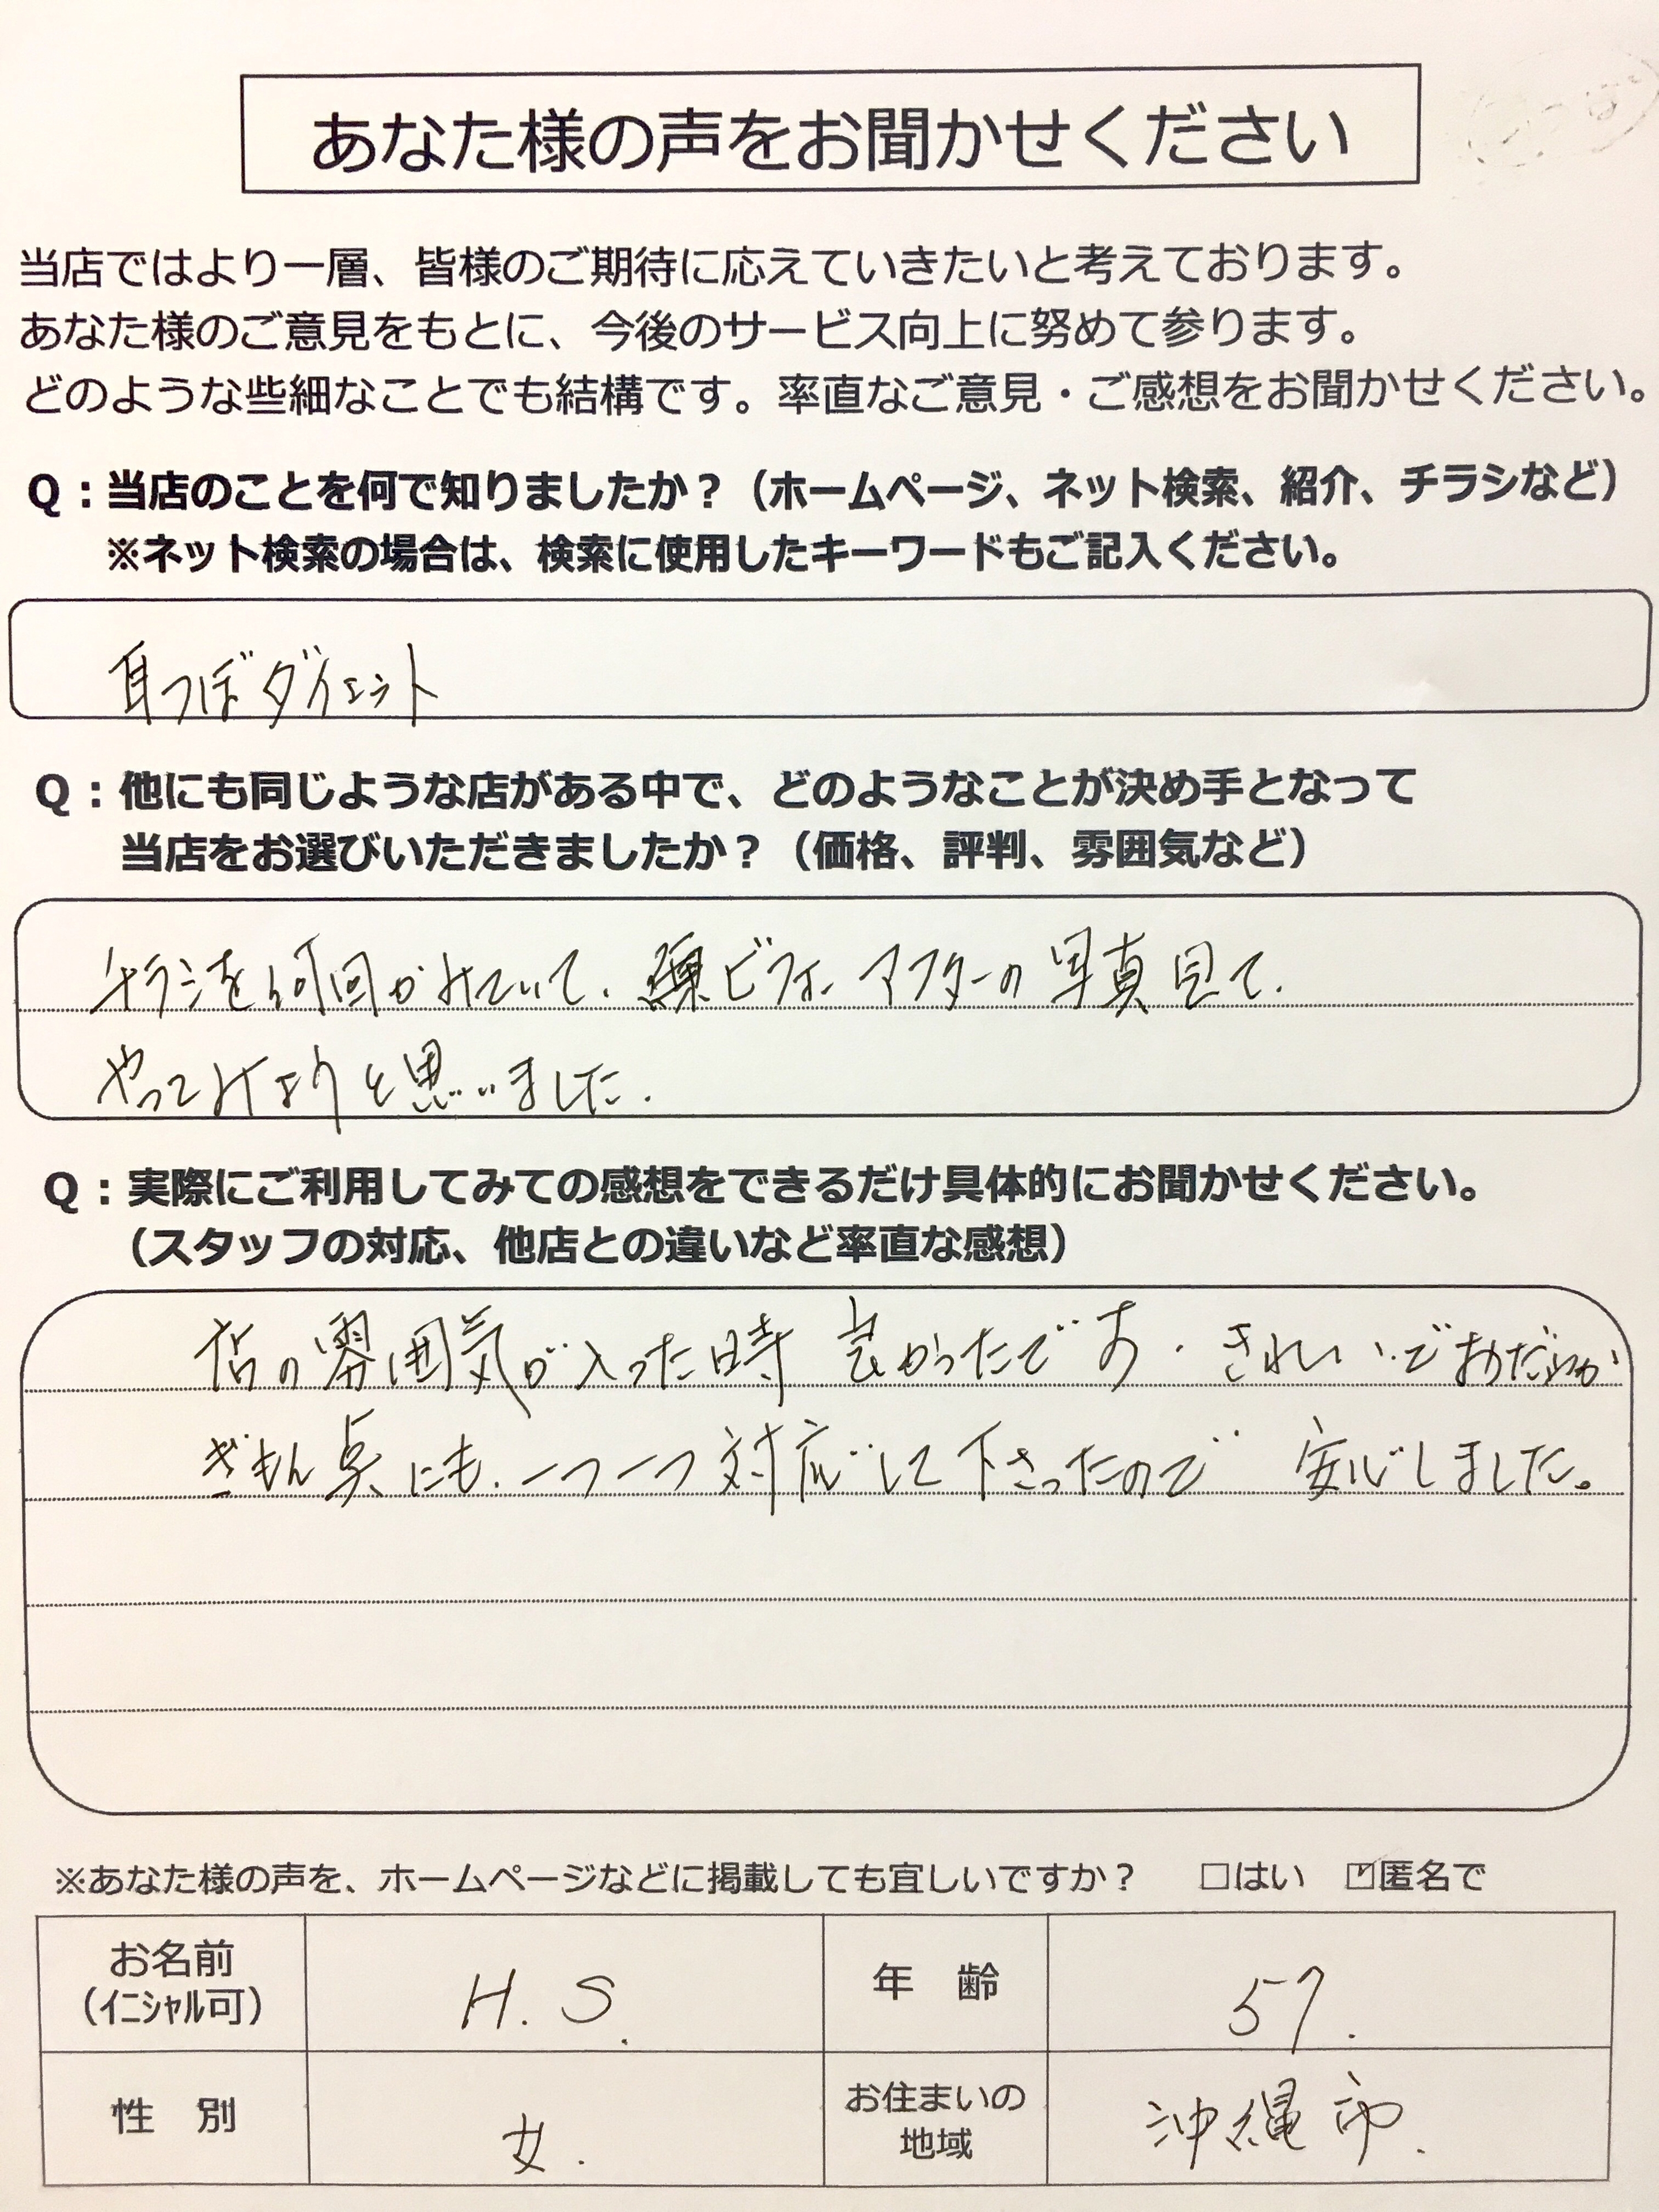 あなた様の声をお聞かせください
当店ではより一層、皆様のご期待に応えていきたいと考えております。
あなた様のご意見をもとに、今後のサービス向上に努めて参ります。
どのような些細なことでも結構です。率直なご意見・ご感想をお聞かせください。
Q：当店のことを何で知りましたか？（ホームページ、ネット検索、紹介、チラシなど）
※ネット検索の場合は、検索に使用したキーワードもご記入ください。
耳つぼダイエット
Q：他にも同じような店がある中で、どのようなことが決め手となって
当店をお選びいただきましたか？（価格、評判、雰囲気など）
チラシを何回かみていて、ビフォーアフターの写真見て、
やってみようと思いました。
Q：実際にご利用してみての感想をできるだけ具体的にお聞かせください。
（スタッフの対応、他店との違いなど率直な感想）
店の雰囲気が入った時良かったです。きれいで
ぎもん点にも、一つ一つ対応して下さったので 安心しました。
※あなた様の声を、ホームページなどに掲載しても宜しいですか？ □はい ☑匿名で
お名前 H.S. 年 齢 57.
（イニシャル可）
性 別 女. お住まいの 沖縄市.
地域